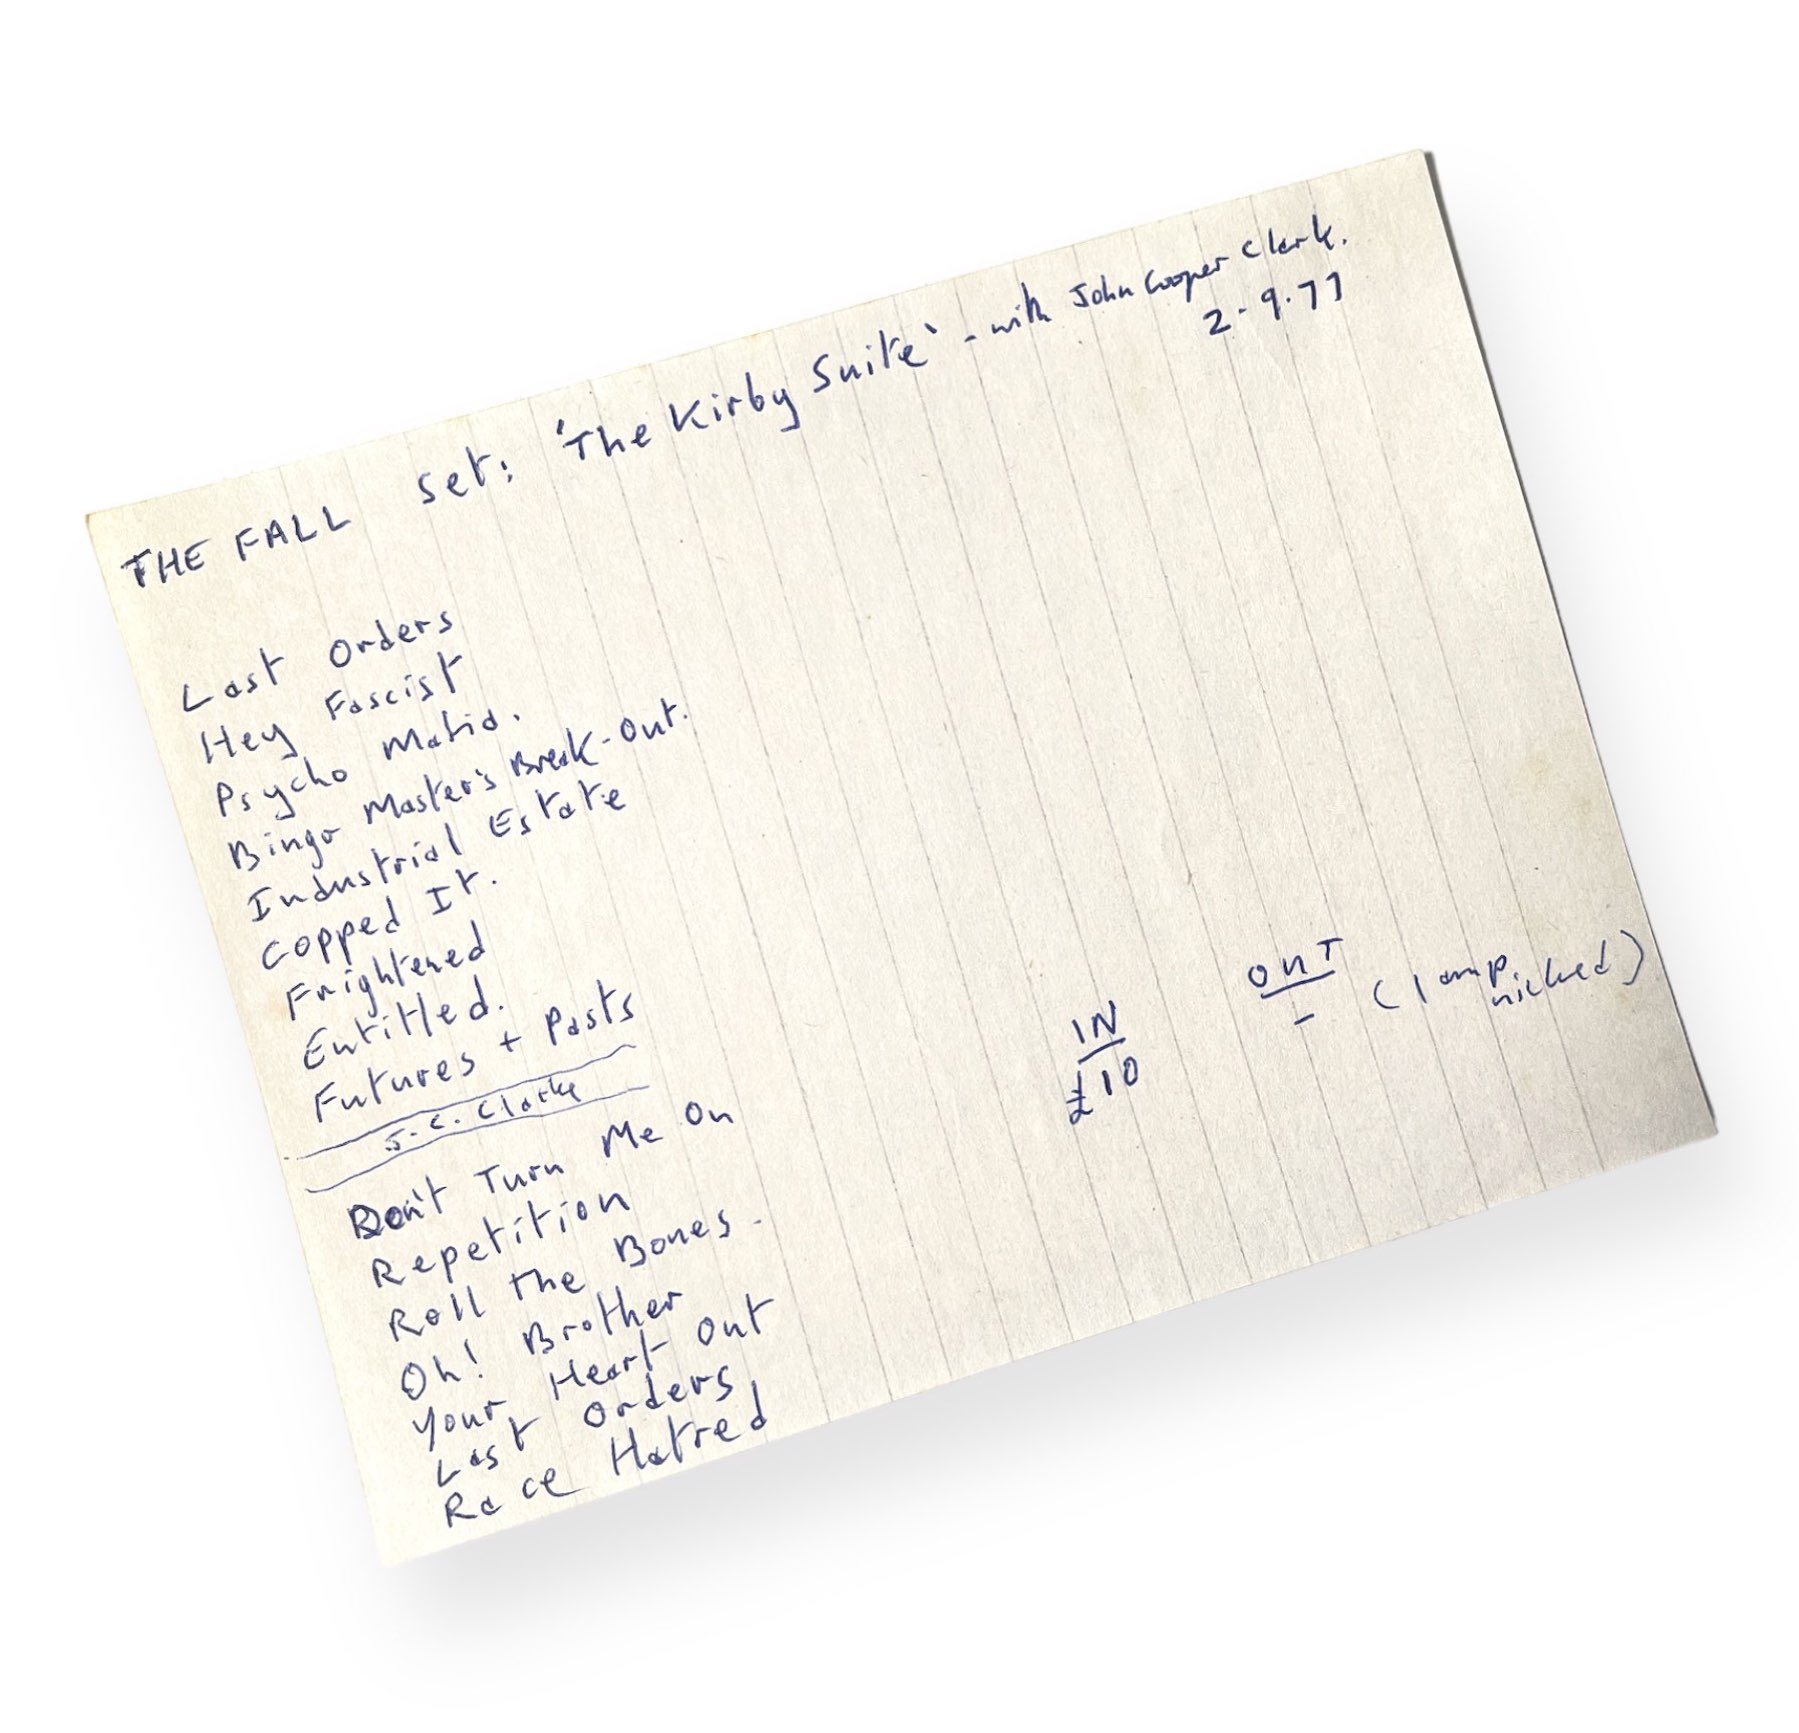 THE FALL set: 'The Kirby Suite' - with John Cooper Clark.
2.9.77
Last Orders
Hey Fascist
Psycho Mafia.
Bingo Master's Break-Out.
Industrial Estate
Copped It.
Frightened
Entitled.
Futures + Pasts
J.C. Clarke
Don't Turn Me On
Repetition
Roll the Bones -
Oh! Brother
Your Heart Out
Last Orders
Race Hatred
IN
£10
OUT
- (1 amp nicked)